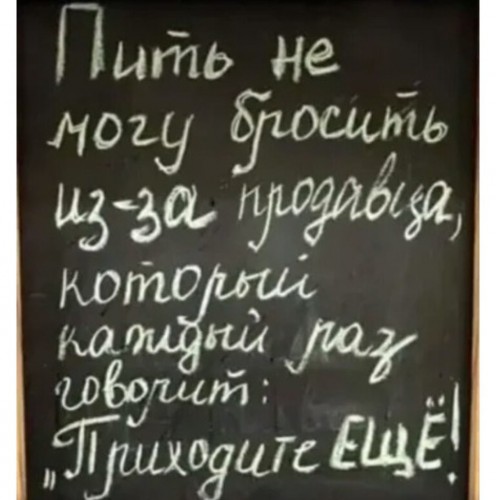 Пить не
могу бросить
из-за продавца,
который
каждый раз
говорит:
„Приходите ЕЩЁ!